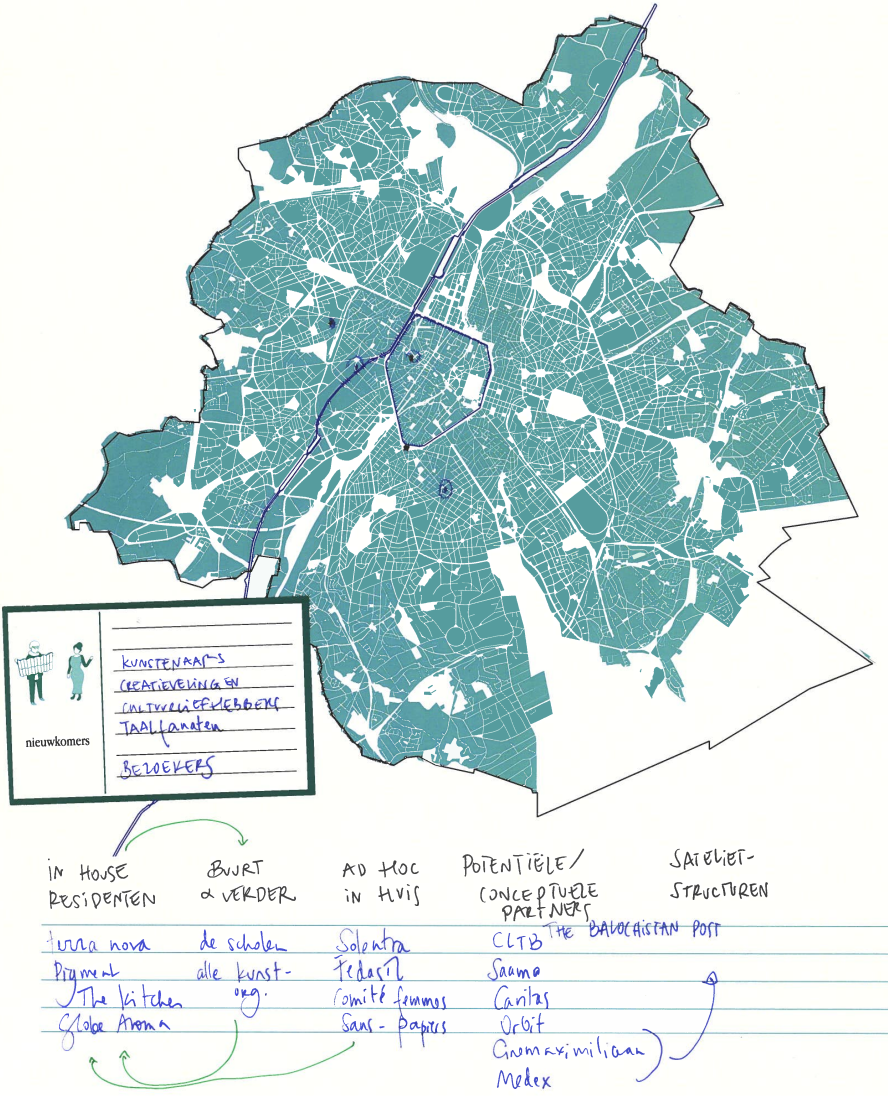 KUNSTENAARS
CREATIEVELINGEN
CULTUURLIEFHEBBERS
TAALfanaten
BEZOEKERS
nieuwkomers
IN HOUSE
RESIDENTEN
BUURT
& VERDER
AD HOC
IN HUIS
POTENTIËLE/
CONCEPTUELE
PARTNERS
SATELIET-
STRUCTUREN
terra nova
Pigment
The kitchen
Globe Aroma
de scholen
alle kunst-
org.
Solentra
Fedasil
Comité femmes
Sans-papiers
CLTB
THE BALOCHISTAN POST
Saamo
Caritas
Orbit
Cinemaximiliaan
Medex